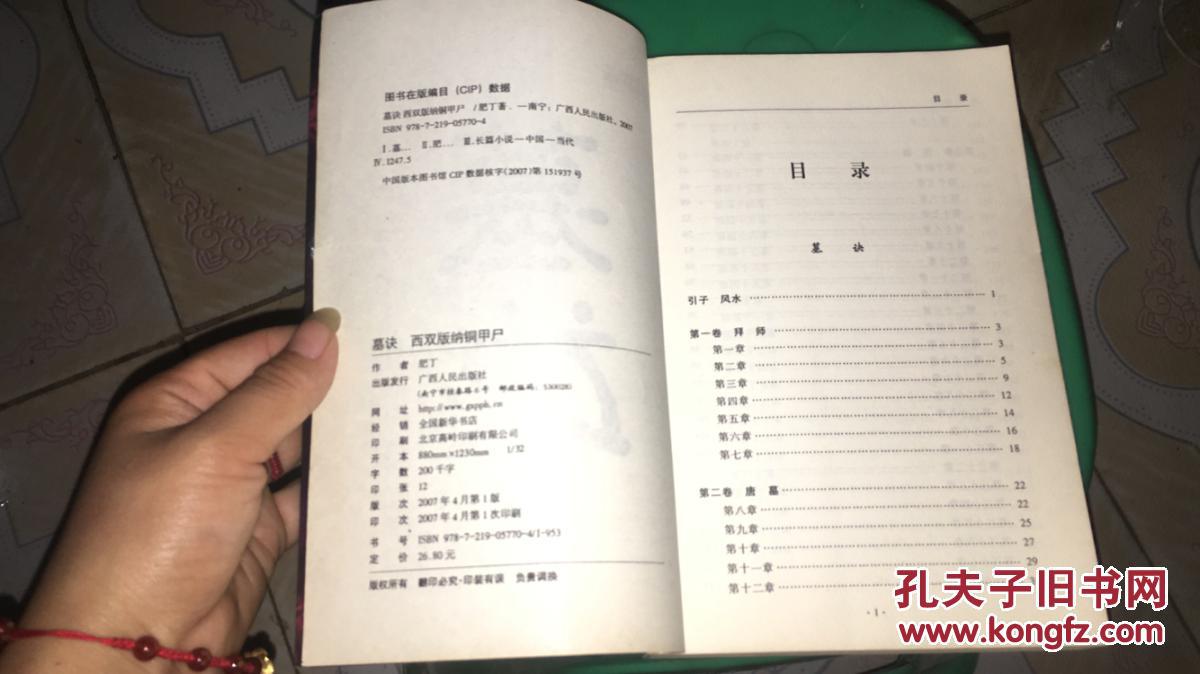 图书在版编目（CIP）数据
墓诀 西双版纳铜甲尸 /肥丁著．—南宁：广西人民出版社，2007
ISBN 978-7-219-05770-4
Ⅰ.墓… Ⅱ.肥… Ⅲ.长篇小说—中国—当代
Ⅳ.I247.5
中国版本图书馆CIP数据核字(2007)第151937号
墓诀 西双版纳铜甲尸
作 者 肥丁
出版发行 广西人民出版社
(南宁市桂春路6号 邮政编码：530028)
网 址 http://www.gxpph.cn
经 销 全国新华书店
印 刷 北京高岭印刷有限公司
开 本 880mm×1230mm 1/32
字 数 200千字
印 张 12
版 次 2007年4月第1版
印 次 2007年4月第1次印刷
书 号 ISBN 978-7-219-05770-4/I-953
定 价 26.80元
版权所有 翻印必究·印装有误 负责调换
目 录
目 录
墓 诀
引子 风水 …… 1
第一卷 拜 师 …… 3
第一章 …… 3
第二章 …… 5
第三章 …… 9
第四章 …… 12
第五章 …… 14
第六章 …… 16
第七章 …… 18
第二卷 唐 墓 …… 22
第八章 …… 22
第九章 …… 25
第十章 …… 27
第十一章 …… 29
第十二章 ……
·1·
孔夫子旧书网
www.kongfz.com